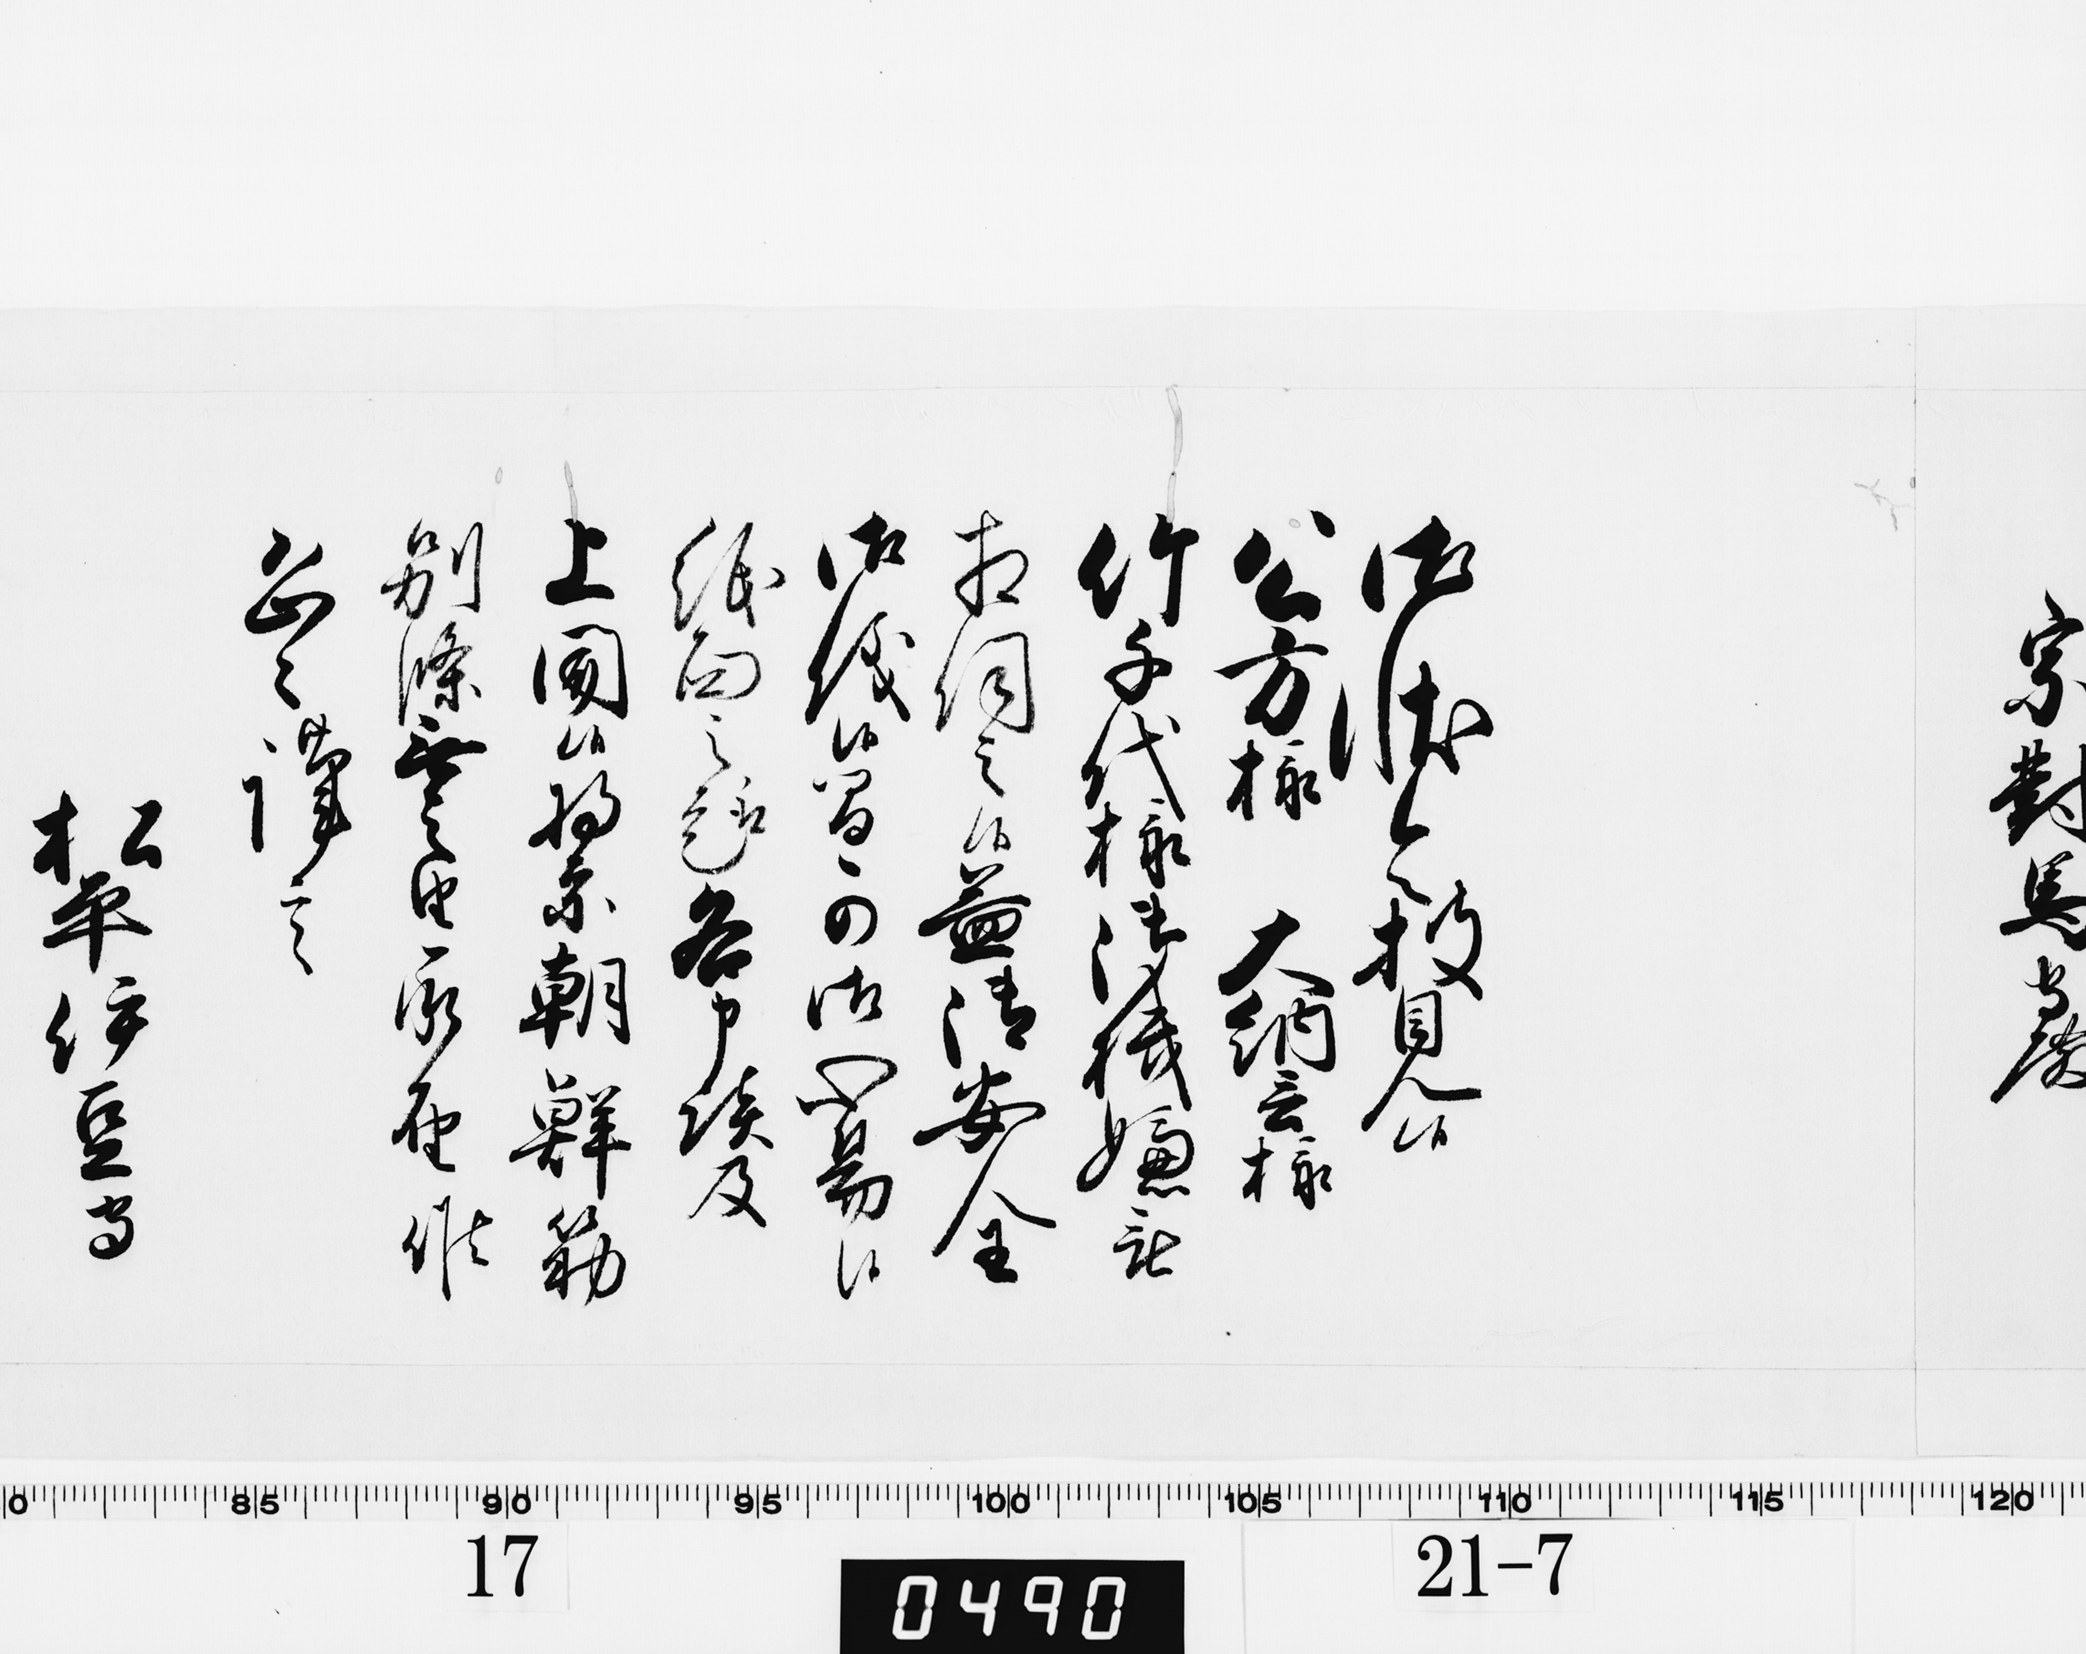 宗對馬守殿
御状令披見候
公方様 大納言様
竹千代様御機嫌被
相伺之候益御安全
御儀候間可御心易候
紙面之趣各申談及
上聞候将亦朝鮮筋
別條無之由承届候
恐々謹言
松平伊豆守
0 85 90 95 100 105 110 115 120
17 21-7
0490